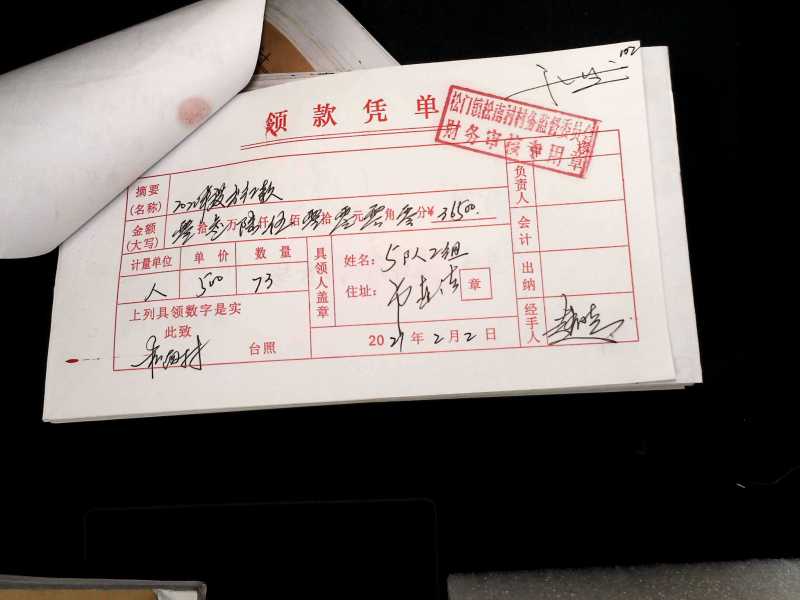 102
领款凭单
松门镇松南村村务监督委员会
财务审核专用章
摘要
(名称)
2020年
款
金额
(大写) 零拾叁万陆仟伍佰零拾零元零角零分¥36500.
计量单位 单价 数量
人 500 73
上列具领数字是实
此致
松南村 台照
具领人盖章
姓名：5队2组
住址：
章
2021年2月2日
负责人
会计
出纳
经手人